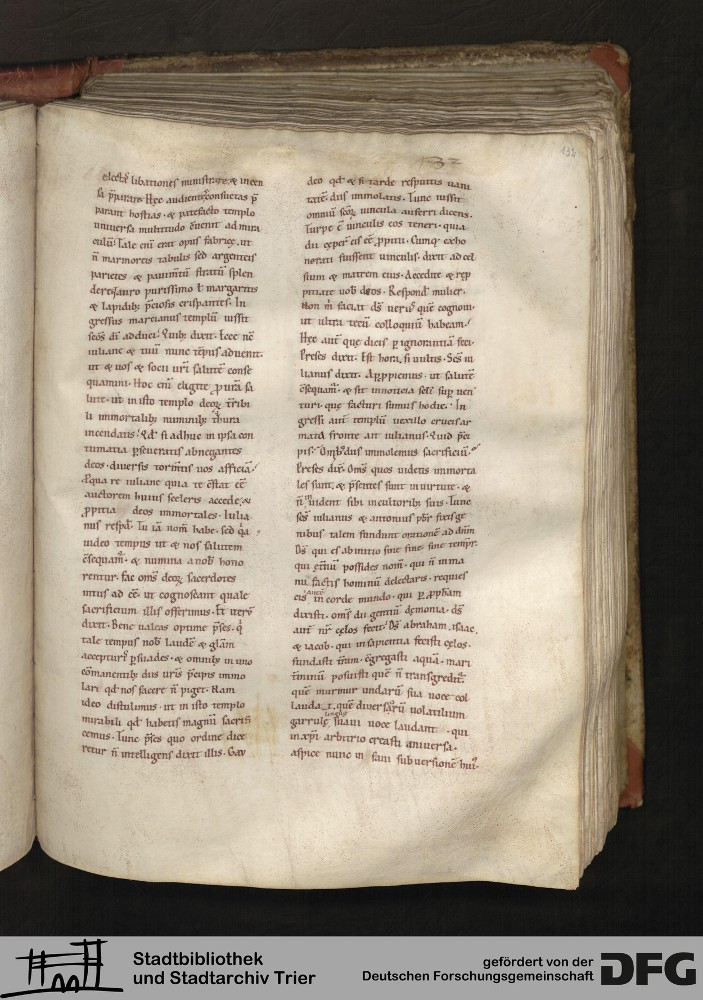 132
libationes ministrare & incen
sa pparare. Hęc audientes consuetas p̄
parant hostias. & patefacto templo
uniuersa multitudo euenit ad mira
culū. Tale enī erat opus fabricę. ut
n̄ marmoreis tabulis sed argenteis
parietes & pauimtū stratū splen
deret auro purissimo ł margaritis
& lapidib; p̄ciosis crispantes. In
gressus marcianus templū iussit
scōs dī adduci. Quib; dixit. Ecce nē
iuliane & tuū nunc tēpus aduenit.
ut & uos & socii urī salutē conse
quamini. Hoc enī eligite pura sa
lute. ut in isto templo deoꝝ
immortalib; numinib; thura
incendatis. Qđ si adhuc in ipsa con
tumatia pseueratis abnegantes
deos. diuersis tormtis uos afficiā.
Qua re iuliane quia te ēstat eē
auctorem huius sceleris accede. &
ppitia deos immortales. Iulia
nus respđ. Tu iā nom̄ habe. sed
uideo tempus ut & nos salutem
& numina a nob̄ hono
rentur. fac om̄s deoꝝ sacerdotes
intus ad eē. ut cognoscant quale
sacrificium illis offerimus. Et
dixit. Bene ualeas optime p̄ses.
tale tempus nob̄ laudē & glām
psuades. & omnib; in uno
cōmanentib; diis urīs p̄cipis immo
lari qđ nos facere n̄ piget. Nam
ideo distulimus. ut in isto templo
mirabili qđ habetis magnū sacrifi
cemus. Tunc p̄ses quo ordine dice
retur n̄ intelligens dixit illis. Gau
deo qđ & si tarde respuitis uani
tatē diis immolatis. Tunc iussit
omniū scoꝝ uincula auferri dicens.
Turpe ē uinculis eos teneri. quia
eē ppitii. Cumq; exho
norati fuissent uinculis. dixit ad cel
sium & matrem eius. Accedite & rep
pitiate uob̄ deos. Respond mulier.
Non m̄ faciat ds̄ uerus quē cognoui.
ut ultra tecū colloquiū habeam.
Hęc autē que dicis p ignorantiā feci.
Preses dixit. Est hora. si uultis. Ses iu
lianus dixit. Appropiemus. ut salutē
& sit in noticia seli sup uen
turi. quę facturi sumus hodie. In
gressi autē templū uexillo crucis ar
mata fronte ait iulianus. Quid p̄ci
pis. Omib; diis immolemus sacrificiū.
Preses dix̄. Om̄s quos uidetis immorta
les sunt. & p̄sentes sunt in uirtute. &
n̄ inuident sibi in cultorib; suis. Tunc
ses iulianus & antonius pbr fixis ge
nibus talem fundunt orationē ad dn̄m
Ds̄ qui es ab initio sine fine. sine tempr.
qui etnū possides nom̄. qui n̄ in ma
nu factis hominū delectaris. requies
cis autē in corde mundo. qui p pphetam
dixisti. om̄s dii gentiū dęmonia. ds̄
autē nr̄ cęlos fecit. Ds̄ abraham. isaac.
& iacob. qui in sapientia fecisti cęlos.
fundasti tr̄am. cgregasti aquā. mari
tm̄inū posuisti quē n̄ transgreditr̄
quē murmur undarū sua uoce col
lauda t. quē diuersarū uolatiliū
linguę
garrulę suaui uoce laudant. qui
in xp̄i arbitrio creasti uniuersa.
aspice nunc in fani subuersionē hui.
Stadtbibliothek
und Stadtarchiv Trier
gefördert von der
Deutschen Forschungsgemeinschaft
DFG